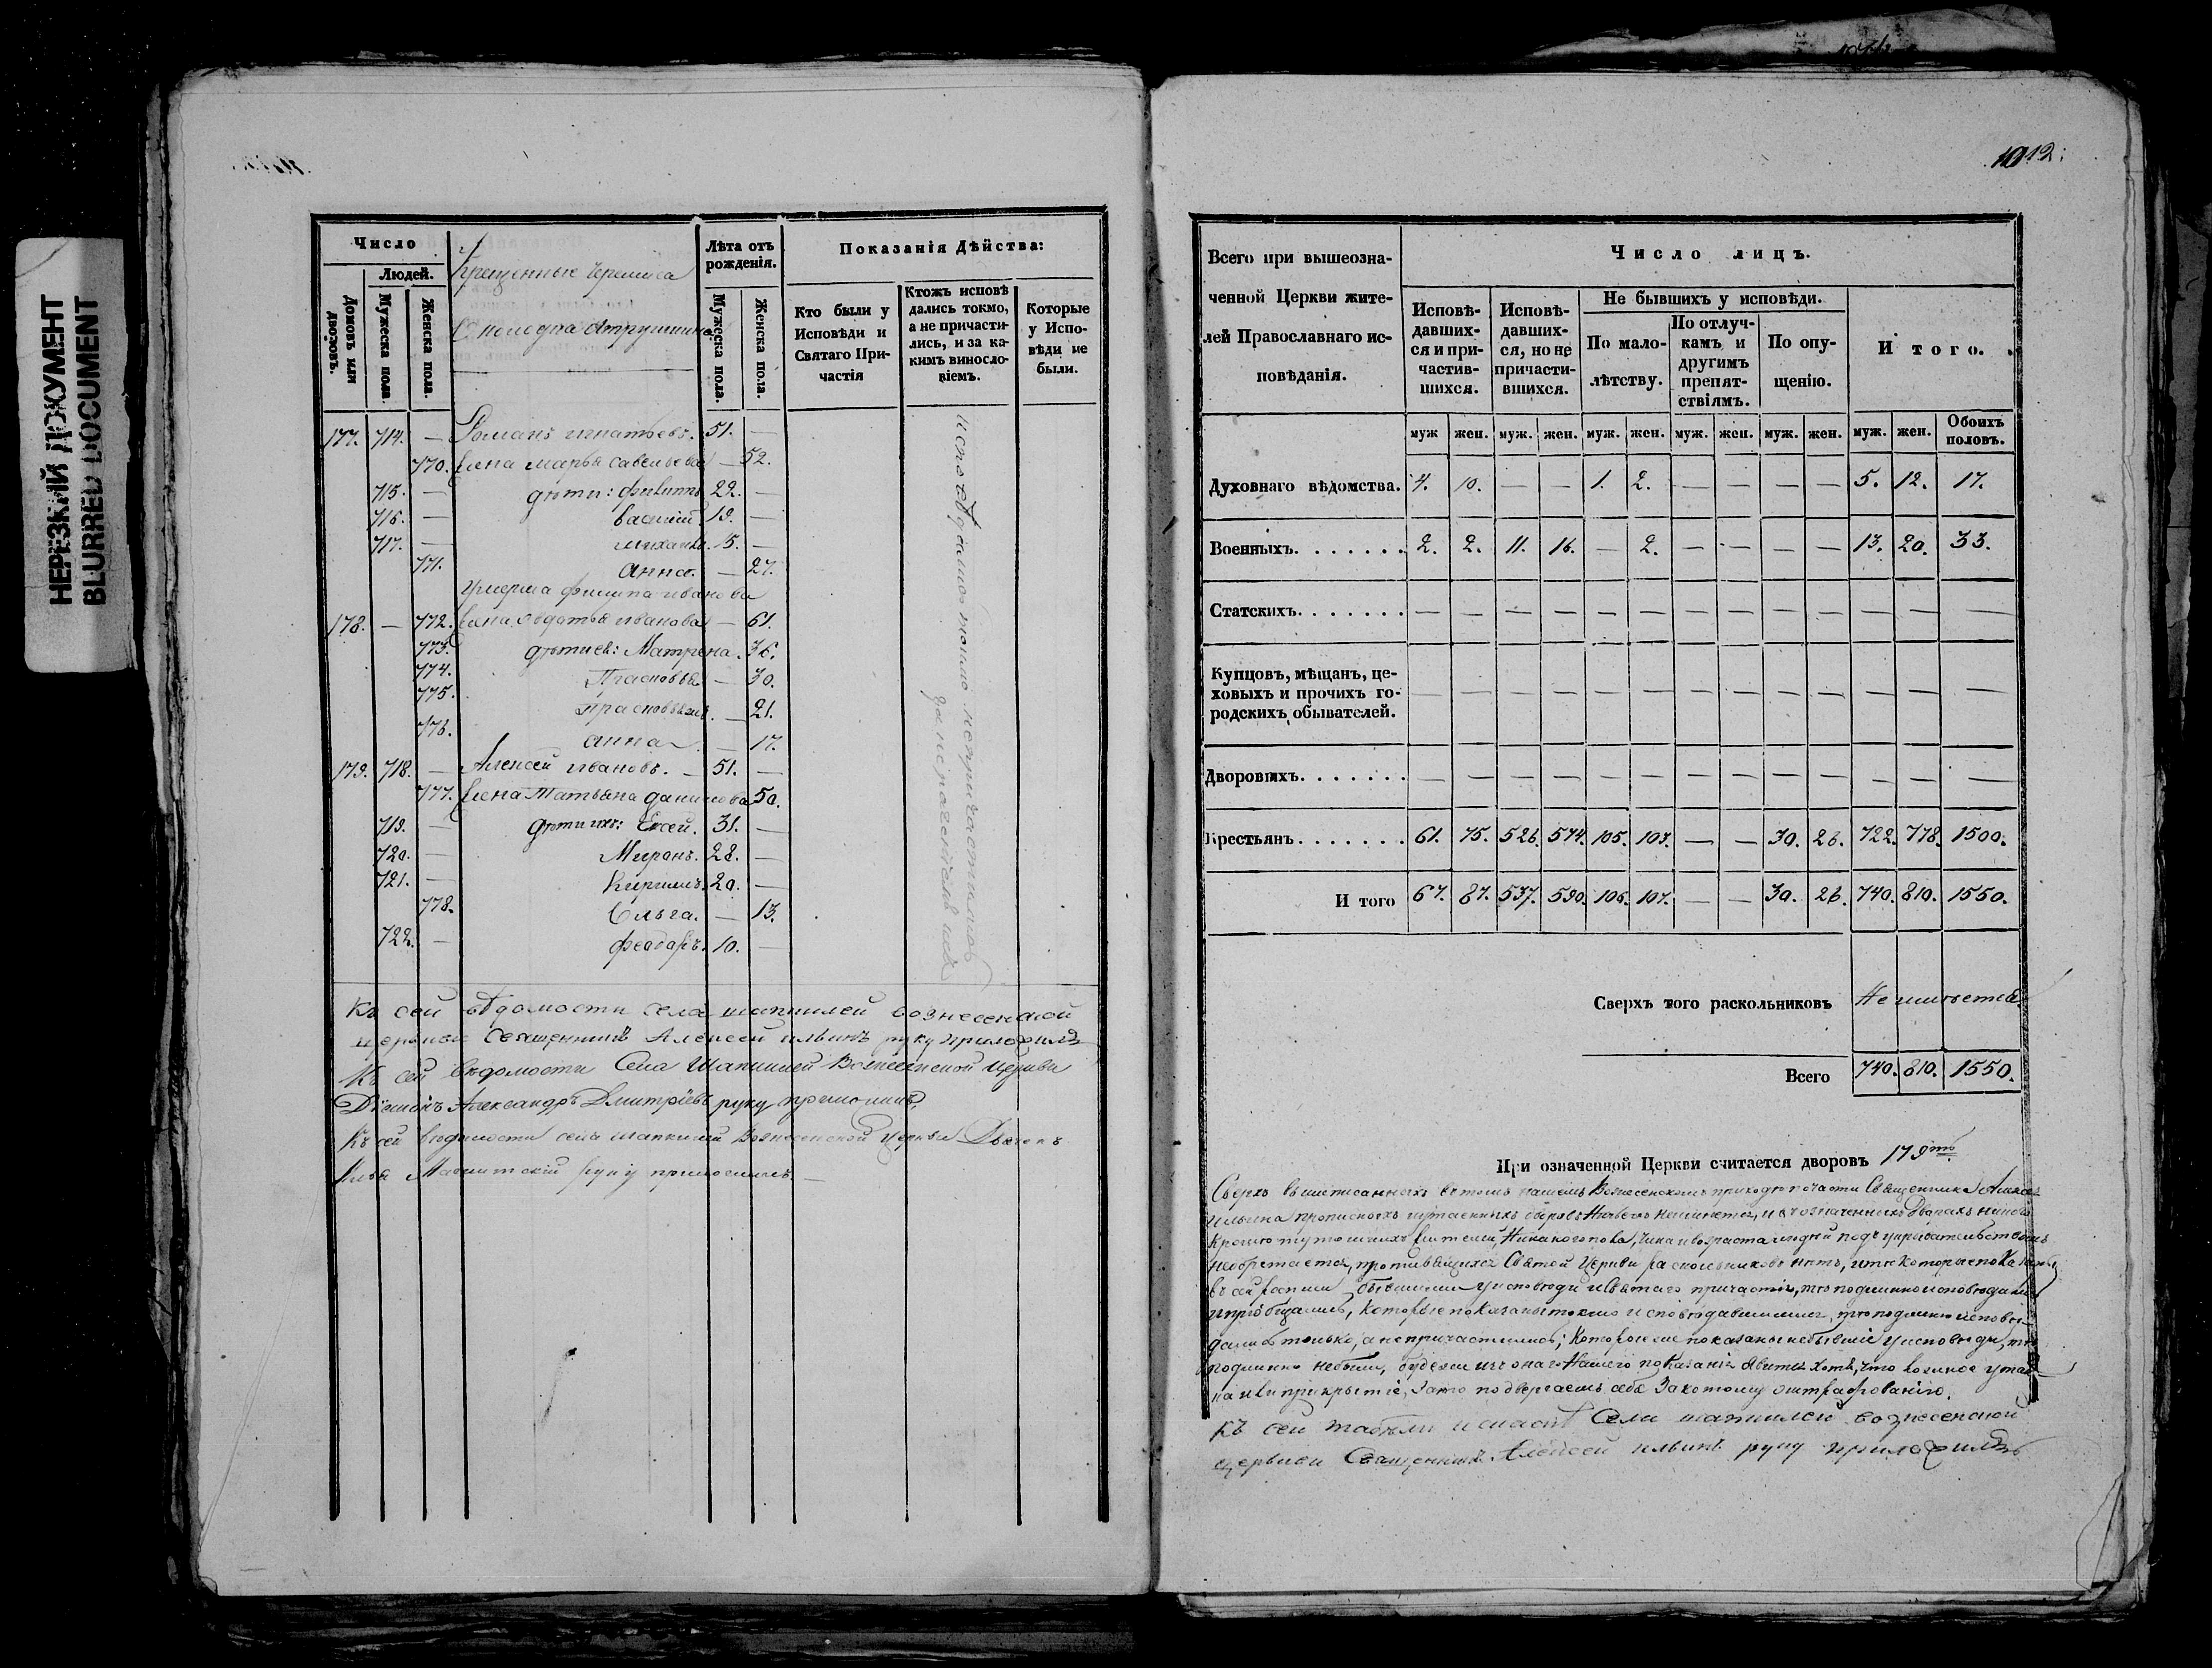 НЕРЕЗКИЙ ДОКУМЕНТ
BLURRED DOCUMENT
Число
Людей.
Домовъ или дворовъ.
Мужеска пола.
Женска пола.
Крещенные черемиса
Околодка Атрушкина
Лѣта отъ рожденія.
Мужеска пола.
Женска пола.
Показанія Дѣйства:
Кто были у Исповѣди и Святаго Причастія
Ктожъ исповѣдались токмо, а не причастились, и за какимъ винословіемъ.
Которые у Исповѣди не были.
177. 714. — Романъ игнатьевъ. 51. —
770. Жена марья савельева — 52.
715. — дѣти: филиппъ 22. —
716. — василій. 19. —
717. — михаилъ. 15. —
771. анна. — 27.
умерша филипа иванова
178. — 772. Жена Авдотья иванова — 61.
773. дѣти ея: Матрена. 36.
774. Прасковья — 30.
775. прасковья — 21.
776. анна — 17.
179. 718. — Алексей ивановъ. — 51. —
777. Жена Татьяна данилова 50.
719. — дѣти ихъ: 31. —
720. — Миронъ. 28. —
721. — Кирилъ. 20. —
778. Ольга. — 13.
722. — феодоръ. 10. —
исповѣдались токмо непричастились
за нерачениемъ
Къ сей вѣдомости села шапкилей вознесенской
церкви священникъ Алексей ильинъ руку приложилъ
Къ сей вѣдомости Села Шапкилей Вознесенской Церкви
Діаконъ Александръ Дмитріевъ руку приложилъ
Къ сей вѣдомости села шапкилей Вознесенской церкви Дьячекъ
руку приложилъ —
1012.
Всего при вышеозначенной Церкви жителей Православнаго исповѣданія.
Число лицъ.
Исповѣдавшихся и причастившихся.
Исповѣдавшихся, но не причастившихся.
Не бывшихъ у исповѣди.
По малолѣтству.
По отлучкамъ и другимъ препятствіямъ.
По опущенію.
И того.
муж жен. муж. жен. муж. жен. муж. жен. муж. жен. муж. жен. Обоихъ половъ.
Духовнаго вѣдомства. 4. 10. — — 1. 2. — — — — 5. 12. 17.
Военныхъ. 2. 2. 11. 16. — 2. — — — — 13. 20. 33.
Статскихъ. — — — — — — — — — — — — —
Купцовъ, мѣщанъ, цеховыхъ и прочихъ городскихъ обывателей. — — — — — — — — — — — — —
Дворовыхъ. — — — — — — — — — — — — —
Крестьянъ. 61. 75. 526. 574. 105. 103. — — 30. 26. 722. 778. 1500.
И того 67. 87. 537. 590. 106. 107. — — 30. 26. 740. 810. 1550.
Сверхъ того раскольниковъ Не имѣется
Всего 740. 810. 1550.
При означенной Церкви считается дворовъ 179ть
Сверхъ вышеписанныхъ въ томъ нашемъ Вознесенскомъ приходѣ почасти Священника Алексея
Ильина прописныхъ и утаенныхъ дворовъ неимѣется, и въ означенныхъ Дворахъ никого
кроме жителей, Никакого пола, чина и возраста людей подъ укрывательствомъ
необретается, противящихся Святой Церкви раскольниковъ нетъ, и те которые показаны
въ сей росписи бывшими у исповѣди и Святаго причастія, те подлинно исповѣдались
и пріобщались, которые показаны токмо исповѣдавшимися, те подлинно исповѣ-
дались только, а не причастились; Которые же показаны небывшіе у исповѣди, те
подлинно небыли, будеже изъ онаго Нашего показанія явится хотя, что ложное утай-
ка или прикрытіе, за то подвергаемъ себя Законному оштрафованію.
къ сей табели села шапкилей вознесенской
церкви Священникъ Алексей ильинъ руку приложилъ